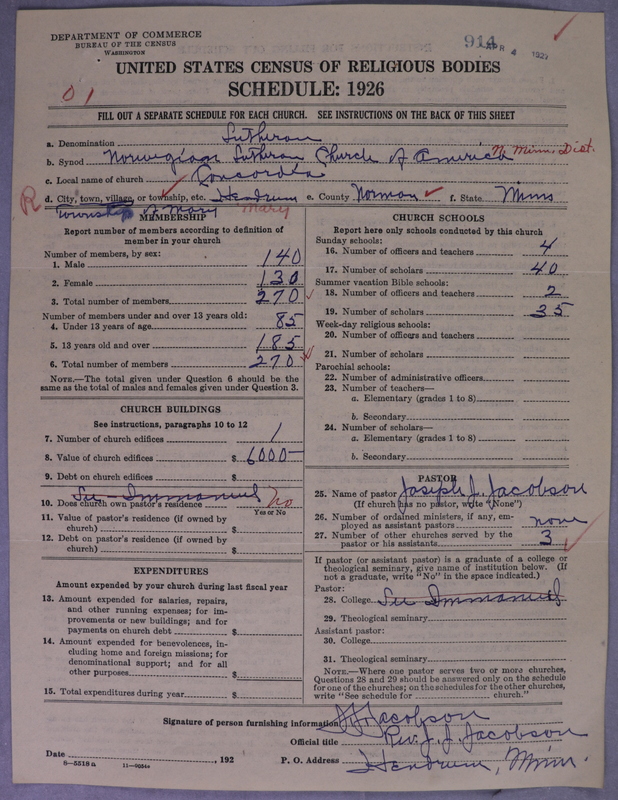 DEPARTMENT OF COMMERCE
BUREAU OF THE CENSUS
WASHINGTON
914 APR 4 1927
UNITED STATES CENSUS OF RELIGIOUS BODIES
SCHEDULE: 1926
01
FILL OUT A SEPARATE SCHEDULE FOR EACH CHURCH. SEE INSTRUCTIONS ON THE BACK OF THIS SHEET
a. Denomination Lutheran
b. Synod Norwegian Lutheran Church of America N. Minn. Dist.
c. Local name of church Concordia
R d. City, town, village, or township, etc. Hendrum e. County Norman f. State Minn
Township of Mary Mary
MEMBERSHIP
Report number of members according to definition of
member in your church
Number of members, by sex:
1. Male 140
2. Female 130
3. Total number of members 270
Number of members under and over 13 years old:
4. Under 13 years of age 85
5. 13 years old and over 185
6. Total number of members 270
NOTE.—The total given under Question 6 should be
same as the total of males and females given under Question 3.
CHURCH BUILDINGS
See instructions, paragraphs 10 to 12
7. Number of church edifices 1
8. Value of church edifices $ 6000—
9. Debt on church edifices $
See Immanuel
10. Does church own pastor's residence No
Yes or No
11. Value of pastor's residence (if owned by
church) $
12. Debt on pastor's residence (if owned by
church) $
EXPENDITURES
Amount expended by your church during last fiscal year
13. Amount expended for salaries, repairs,
and other running expenses; for im-
provements or new buildings; and for
payments on church debt $
14. Amount expended for benevolences, in-
cluding home and foreign missions; for
denominational support; and for all
other purposes $
15. Total expenditures during year $
CHURCH SCHOOLS
Report here only schools conducted by this church
Sunday schools:
16. Number of officers and teachers 4
17. Number of scholars 40
Summer vacation Bible schools:
18. Number of officers and teachers 2
19. Number of scholars 35
Week-day religious schools:
20. Number of officers and teachers
21. Number of scholars
Parochial schools:
22. Number of administrative officers
23. Number of teachers—
a. Elementary (grades 1 to 8)
b. Secondary
24. Number of scholars—
a. Elementary (grades 1 to 8)
b. Secondary
PASTOR
25. Name of pastor Joseph J. Jacobson
(If church has no pastor, write "None")
26. Number of ordained ministers, if any, em-
ployed as assistant pastors none
27. Number of other churches served by the
pastor or his assistants 3
If pastor (or assistant pastor) is a graduate of a college or
theological seminary, give name of institution below. (If
not a graduate, write "No" in the space indicated.)
Pastor:
28. College See Immanuel
29. Theological seminary
Assistant pastor:
30. College
31. Theological seminary
NOTE.—Where one pastor serves two or more churches,
Questions 28 and 29 should be answered only on the schedule
for one of the churches; on the schedules for the other churches,
write "See schedule for church."
Signature of person furnishing information J. J. Jacobson
Official title Rev. J. J. Jacobson
Date , 192 P. O. Address Hendrum, Minn.
8—5518a 11—9054a